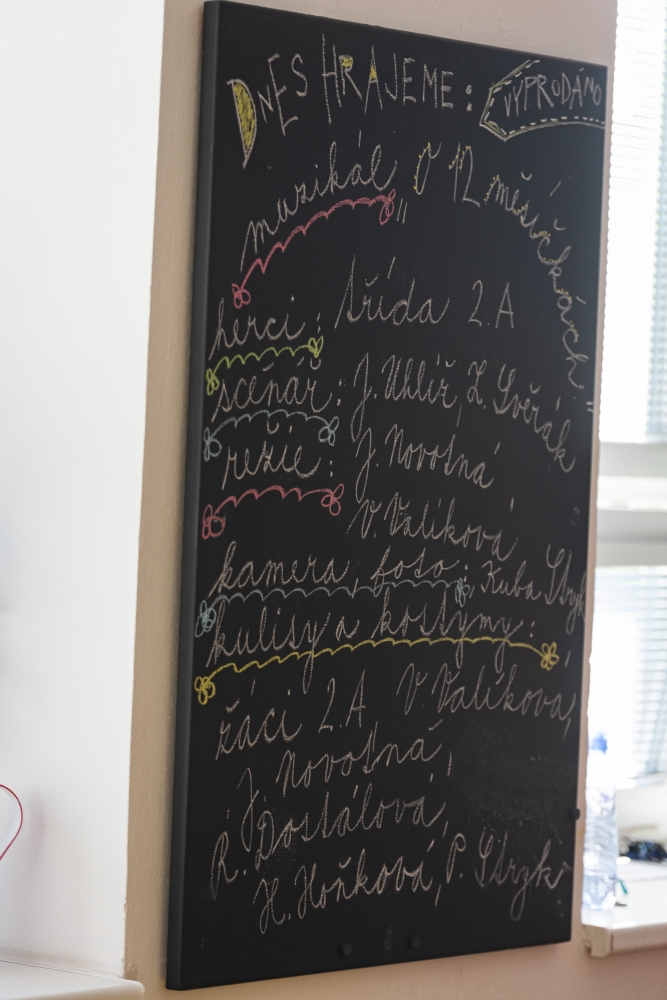 DNES HRAJEME: VYPRODÁNO
muzikál "O 12 měsíčkách"
herci: třída 2.A
scénář: J. Uhlíř, Z. Svěrák
režie: J. Novotná
V. Valíková
kamera, foto: Kuba Stryk
kulisy a kostýmy:
žáci 2.A V. Valíková,
J. Novotná,
R. Dostálová,
H. Hoňková, P. Stryk